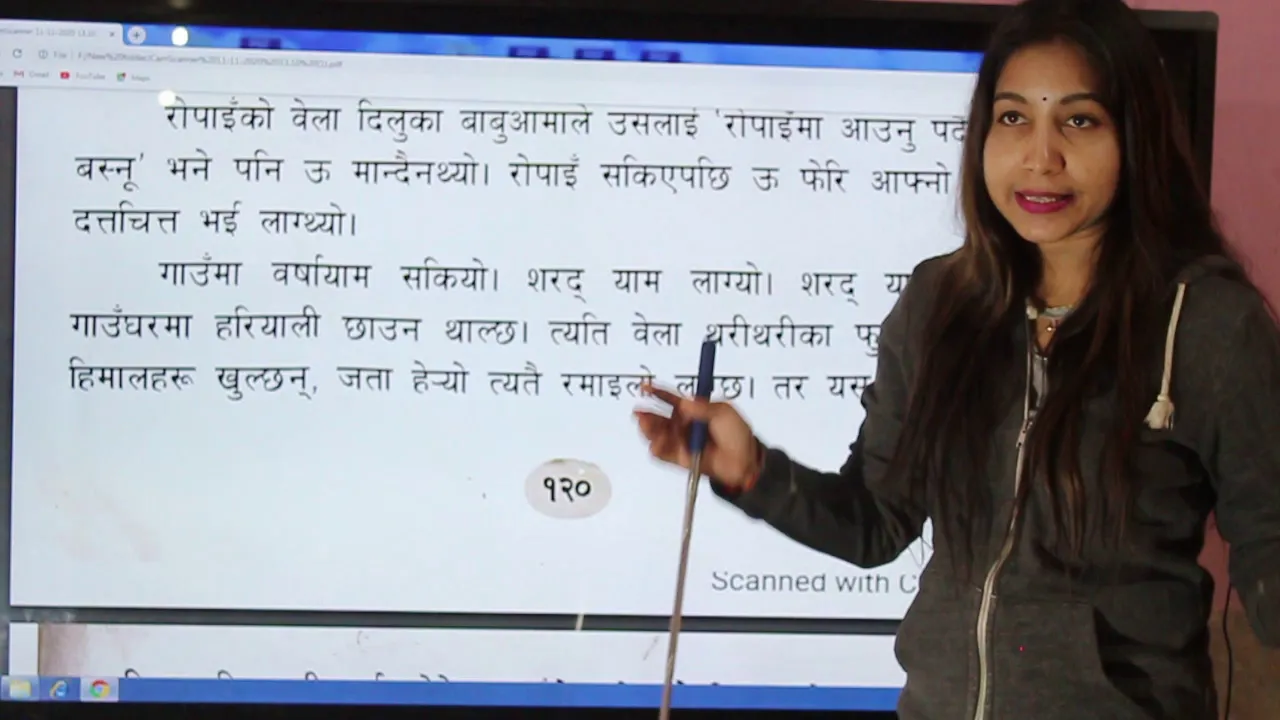 Gmail YouTube Maps
रोपाइँको वेला दिलुका बाबुआमाले उसलाई 'रोपाइँमा आउनु
बस्नू' भने पनि ऊ मान्दैनथ्यो। रोपाइँ सकिएपछि ऊ फेरि आफ्नो
दत्तचित्त भई लाग्थ्यो।
गाउँमा वर्षायाम सकियो। शरद् याम लाग्यो। शरद्
गाउँघरमा हरियाली छाउन थाल्छ। त्यति वेला थरीथरीका
हिमालहरू खुल्छन्, जता हेऱ्यो त्यतै रमाइलो लाग्छ। तर यस
१२०
Scanned with